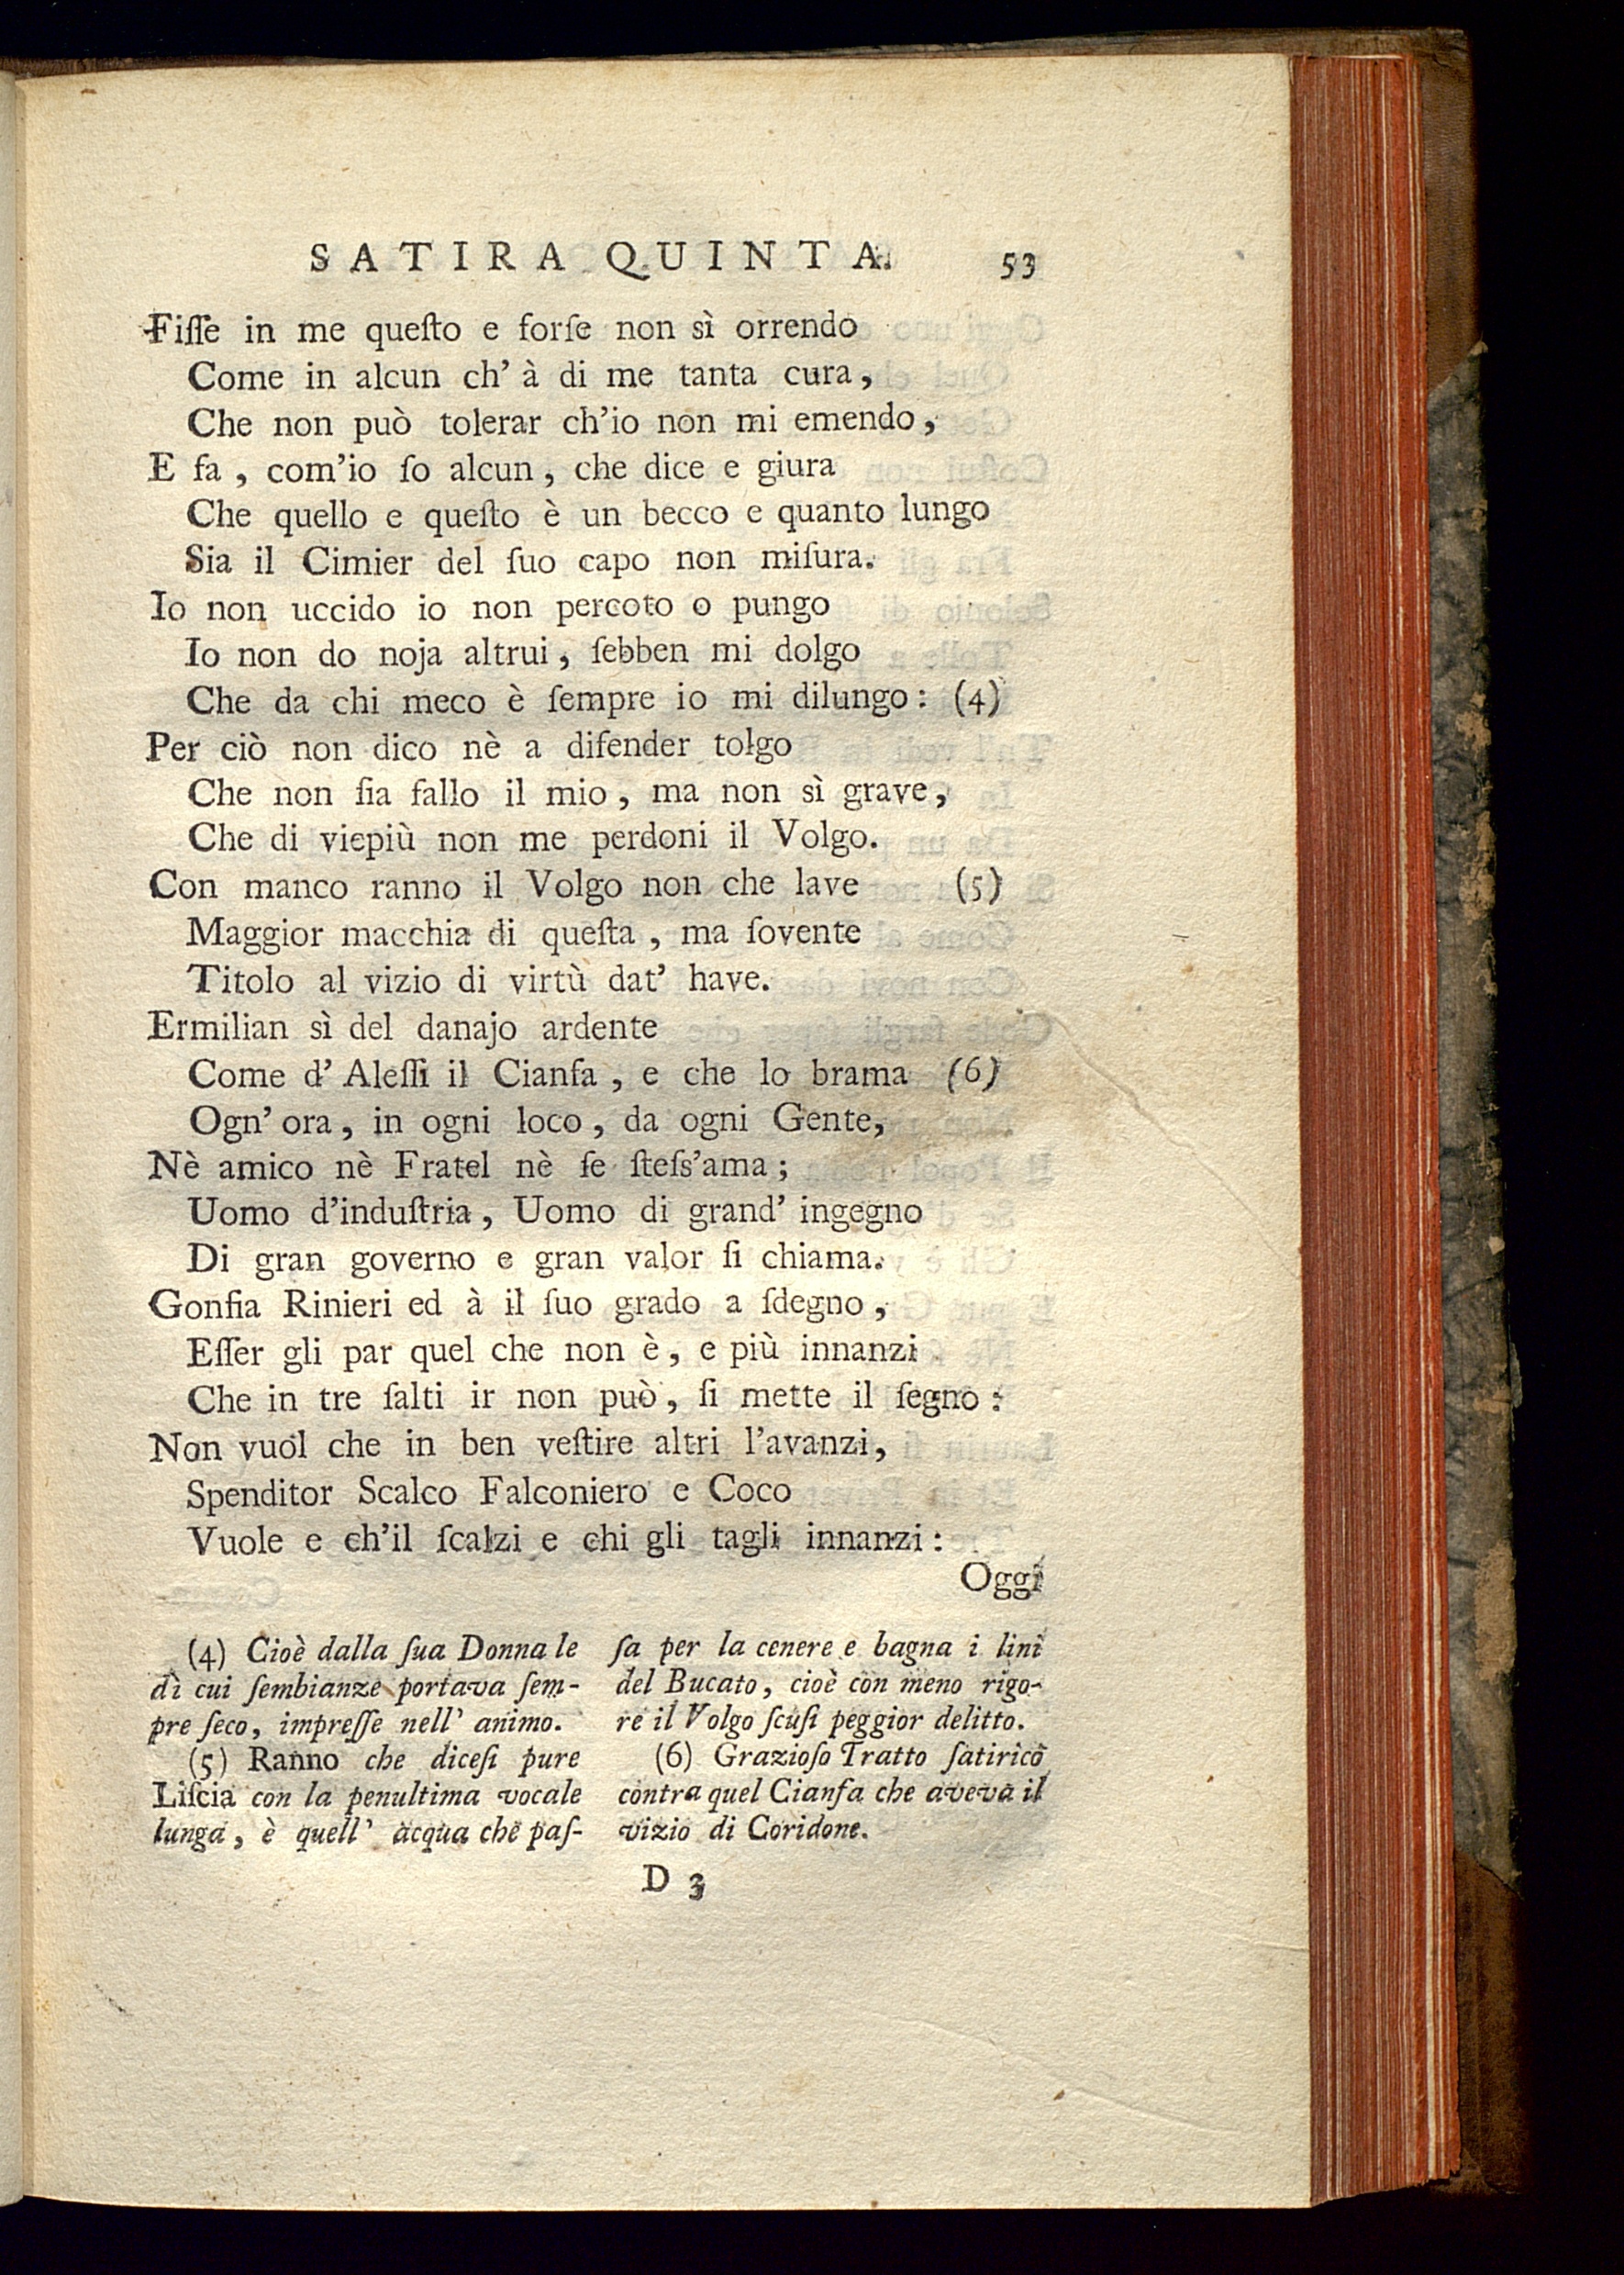 SATIRA QUINTA. 53
Fiſſe in me queſto e forſe non sì orrendo
Come in alcun ch' à di me tanta cura,
Che non può tolerar ch'io non mi emendo,
E fa, com'io ſo alcun, che dice e giura
Che quello e queſto è un becco e quanto lungo
Sia il Cimier del ſuo capo non miſura.
Io non uccido io non percoto o pungo
Io non do noja altrui, ſebben mi dolgo
Che da chi meco è ſempre io mi dilungo: (4)
Per ciò non dico nè a difender tolgo
Che non ſia fallo il mio, ma non sì grave,
Che di viepiù non me perdoni il Volgo.
Con manco ranno il Volgo non che lave (5)
Maggior macchia di queſta, ma ſovente
Titolo al vizio di virtù dat' have.
Ermilian sì del danajo ardente
Come d' Aleſſi il Cianfa, e che lo brama (6)
Ogn' ora, in ogni loco, da ogni Gente,
Nè amico nè Fratel nè ſe ſteſs'ama;
Uomo d'induſtria, Uomo di grand' ingegno
Di gran governo e gran valor ſi chiama.
Gonfia Rinieri ed à il ſuo grado a ſdegno,
Eſſer gli par quel che non è, e più innanzi
Che in tre ſalti ir non può, ſi mette il ſegno:
Non vuol che in ben veſtire altri l'avanzi,
Spenditor Scalco Falconiero e Coco
Vuole e ch'il ſcalzi e chi gli tagli innanzi:
Oggi
(4) Cioè dalla ſua Donna le
dì cui ſembianze portava ſem-
pre ſeco, impreſſe nell' animo.
(5) Ranno che diceſi pure
Liſcia con la penultima vocale
lunga, è quell' acqua che paſ-
ſa per la cenere e bagna i lini
del Bucato, cioè con meno rigo-
re il Volgo ſcuſi peggior delitto.
(6) Grazioſo Tratto ſatirico
contra quel Cianfa che aveva il
vizio di Coridone.
D 3